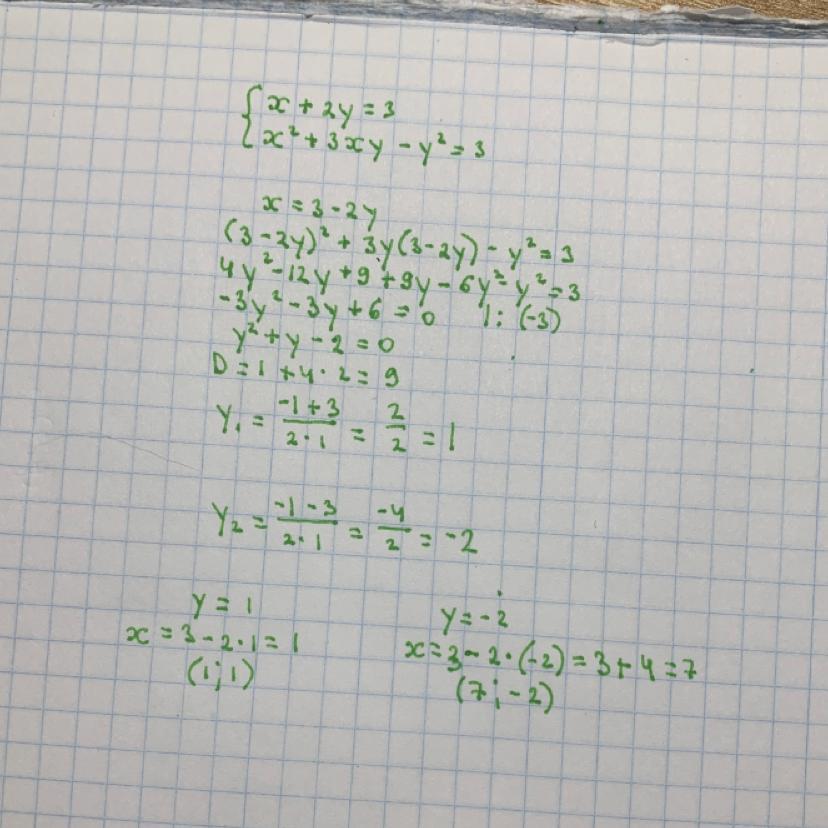 { x + 2y = 3
x² + 3xy - y² = 3
x = 3 - 2y
(3 - 2y)² + 3y(3 - 2y) - y² = 3
4y² - 12y + 9 + 9y - 6y² - y² = 3
-3y² - 3y + 6 = 0 | : (-3)
y² + y - 2 = 0
D = 1 + 4 · 2 = 9
y₁ = (-1 + 3)/(2 · 1) = 2/2 = 1
y₂ = (-1 - 3)/(2 · 1) = -4/2 = -2
y = 1
x = 3 - 2 · 1 = 1
(1; 1)
y = -2
x = 3 - 2 · (-2) = 3 + 4 = 7
(7; -2)